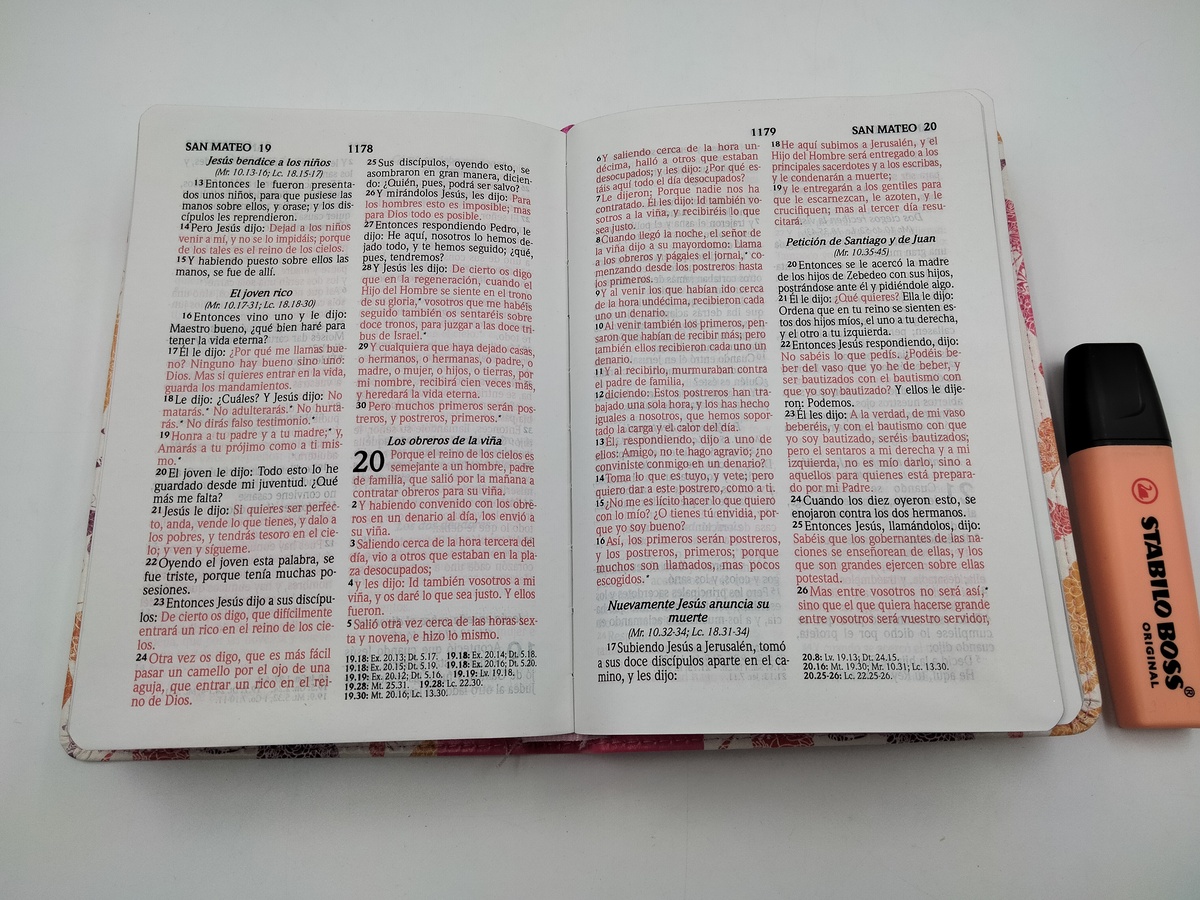 SAN MATEO 19
1178
Jesús bendice a los niños
(Mr. 10.13-16; Lc. 18.15-17)
13 Entonces le fueron presenta-
dos unos niños, para que pusiese las
manos sobre ellos, y orase; y los dis-
cípulos les reprendieron.
14 Pero Jesús dijo: Dejad a los niños
venir a mí, y no se lo impidáis; porque
de los tales es el reino de los cielos.
15 Y habiendo puesto sobre ellos las
manos, se fue de allí.
El joven rico
(Mr. 10.17-31; Lc. 18.18-30)
16 Entonces vino uno y le dijo:
Maestro bueno, ¿qué bien haré para
tener la vida eterna?
17 Él le dijo: ¿Por qué me llamas bue-
no? Ninguno hay bueno sino uno:
Dios. Mas si quieres entrar en la vida,
guarda los mandamientos.
18 Le dijo: ¿Cuáles? Y Jesús dijo: No
matarás.* No adulterarás.* No hurta-
rás.* No dirás falso testimonio.*
19 Honra a tu padre y a tu madre;* y,
Amarás a tu prójimo como a ti mis-
mo.*
20 El joven le dijo: Todo esto lo he
guardado desde mi juventud. ¿Qué
más me falta?
21 Jesús le dijo: Si quieres ser perfec-
to, anda, vende lo que tienes, y dalo a
los pobres, y tendrás tesoro en el cie-
lo; y ven y sígueme.
22 Oyendo el joven esta palabra, se
fue triste, porque tenía muchas po-
sesiones.
23 Entonces Jesús dijo a sus discípu-
los: De cierto os digo, que difícilmente
entrará un rico en el reino de los cie-
los.
24 Otra vez os digo, que es más fácil
pasar un camello por el ojo de una
aguja, que entrar un rico en el rei-
no de Dios.
25 Sus discípulos, oyendo esto, se
asombraron en gran manera, dicien-
do: ¿Quién, pues, podrá ser salvo?
26 Y mirándolos Jesús, les dijo: Para
los hombres esto es imposible; mas
para Dios todo es posible.
27 Entonces respondiendo Pedro, le
dijo: He aquí, nosotros lo hemos de-
jado todo, y te hemos seguido; ¿qué,
pues, tendremos?
28 Y Jesús les dijo: De cierto os digo
que en la regeneración, cuando el
Hijo del Hombre se siente en el trono
de su gloria,* vosotros que me habéis
seguido también os sentaréis sobre
doce tronos, para juzgar a las doce tri-
bus de Israel.*
29 Y cualquiera que haya dejado casas,
o hermanos, o hermanas, o padre, o
madre, o mujer, o hijos, o tierras, por
mi nombre, recibirá cien veces más,
y heredará la vida eterna.
30 Pero muchos primeros serán pos-
treros, y postreros, primeros.*
Los obreros de la viña
20 Porque el reino de los cielos es
semejante a un hombre, padre
de familia, que salió por la mañana a
contratar obreros para su viña.
2 Y habiendo convenido con los obre-
ros en un denario al día, los envió a
su viña.
3 Saliendo cerca de la hora tercera del
día, vio a otros que estaban en la pla-
za desocupados;
4 y les dijo: Id también vosotros a mi
viña, y os daré lo que sea justo. Y ellos
fueron.
5 Salió otra vez cerca de las horas sex-
ta y novena, e hizo lo mismo.
19.18: Ex. 20.13; Dt. 5.17. 19.18: Ex. 20.14; Dt. 5.18.
19.18: Ex. 20.15; Dt. 5.19. 19.18: Ex. 20.16; Dt. 5.20.
19.19: Ex. 20.12; Dt. 5.16. 19.19: Lv. 19.18.
19.28: Mt. 25.31. 19.28: Lc. 22.30.
19.30: Mt. 20.16; Lc. 13.30.
1179
SAN MATEO 20
6 Y saliendo cerca de la hora un-
décima, halló a otros que estaban
desocupados; y les dijo: ¿Por qué es-
táis aquí todo el día desocupados?
7 Le dijeron: Porque nadie nos ha
contratado. Él les dijo: Id también vo-
sotros a la viña, y recibiréis lo que
sea justo.
8 Cuando llegó la noche, el señor de
la viña dijo a su mayordomo: Llama
a los obreros y págales el jornal,* co-
menzando desde los postreros hasta
los primeros.
9 Y al venir los que habían ido cerca
de la hora undécima, recibieron cada
uno un denario.
10 Al venir también los primeros, pen-
saron que habían de recibir más; pero
también ellos recibieron cada uno un
denario.
11 Y al recibirlo, murmuraban contra
el padre de familia,
12 diciendo: Estos postreros han tra-
bajado una sola hora, y los has hecho
iguales a nosotros, que hemos sopor-
tado la carga y el calor del día.
13 Él, respondiendo, dijo a uno de
ellos: Amigo, no te hago agravio; ¿no
conviniste conmigo en un denario?
14 Toma lo que es tuyo, y vete; pero
quiero dar a este postrero, como a ti.
15 ¿No me es lícito hacer lo que quiero
con lo mío? ¿O tienes tú envidia, por-
que yo soy bueno?
16 Así, los primeros serán postreros,
y los postreros, primeros; porque
muchos son llamados, mas pocos
escogidos.*
Nuevamente Jesús anuncia su
muerte
(Mr. 10.32-34; Lc. 18.31-34)
17 Subiendo Jesús a Jerusalén, tomó
a sus doce discípulos aparte en el ca-
mino, y les dijo:
18 He aquí subimos a Jerusalén, y el
Hijo del Hombre será entregado a los
principales sacerdotes y a los escribas,
y le condenarán a muerte;
19 y le entregarán a los gentiles para
que le escarnezcan, le azoten, y le
crucifiquen; mas al tercer día resu-
citará.
Petición de Santiago y de Juan
(Mr. 10.35-45)
20 Entonces se le acercó la madre
de los hijos de Zebedeo con sus hijos,
postrándose ante él y pidiéndole algo.
21 Él le dijo: ¿Qué quieres? Ella le dijo:
Ordena que en tu reino se sienten es-
tos dos hijos míos, el uno a tu derecha,
y el otro a tu izquierda.
22 Entonces Jesús respondiendo, dijo:
No sabéis lo que pedís. ¿Podéis be-
ber del vaso que yo he de beber, y
ser bautizados con el bautismo con
que yo soy bautizado? Y ellos le dije-
ron: Podemos.
23 Él les dijo: A la verdad, de mi vaso
beberéis, y con el bautismo con que
yo soy bautizado, seréis bautizados;
pero el sentaros a mi derecha y a mi
izquierda, no es mío darlo, sino a
aquellos para quienes está prepara-
do por mi Padre.
24 Cuando los diez oyeron esto, se
enojaron contra los dos hermanos.
25 Entonces Jesús, llamándolos, dijo:
Sabéis que los gobernantes de las na-
ciones se enseñorean de ellas, y los
que son grandes ejercen sobre ellas
potestad.
26 Mas entre vosotros no será así,*
sino que el que quiera hacerse grande
entre vosotros será vuestro servidor,
20.8: Lv. 19.13; Dt. 24.15.
20.16: Mt. 19.30; Mr. 10.31; Lc. 13.30.
20.25-26: Lc. 22.25-26.
STABILO BOSS®
ORIGINAL